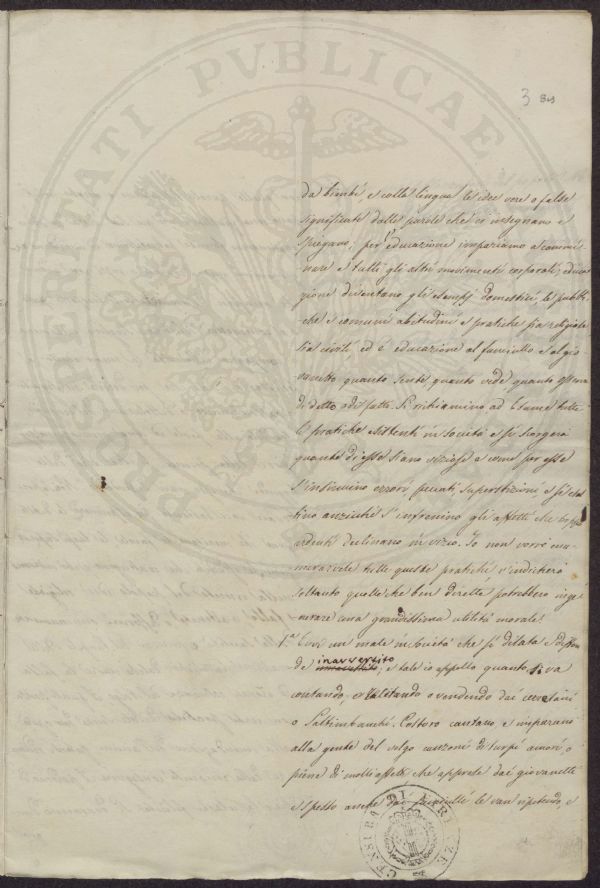 3 Bis
da bimbi, e colla lingua le idee vere o false
significate dalle parole che ci insegnano e
spiegano; per educazione impariamo a cammi-
nare e tutti gli altri movimenti corporali; educa
zione diventano gli esempj domestici, le pubbli-
che e comuni abitudini e pratiche sia religiose
sia civili, ed è educazione al fanciullo e al gio
vanetto quanto sente, quanto vede quanto osserva
di detto o di fatto. Si richiamino ad esame tutte
le pratiche esistenti in società e si scorgerà
quante di esse siano viziose e come per esse
s'insinuino errori pecati superstizioni e si
tino anzichè s'infrenino gli affetti che troppo
ardenti declinano in vizio. Io non vorrò enu-
merarvele tutte queste pratiche v'indicherò
soltanto quelle che ben dirette potrebbero inge-
nerare una grandissima utilità morale.
1.a Evvi un male in Società che si dilata e diffon
de inavvertito; e tale io appello quanto si va
cantando, e recitando o vendendo dai cerretani
o Saltimbanchi. Costoro cantano, e imparano
alla gente del volgo canzoni di turpi amori, o
piene di molti affetti che apprese dai giovanetti
e spesso anche dai fanciulli le van ripetendo, e
PROSPERITATI PVBLICAE
CENSURA DI FIRENZE